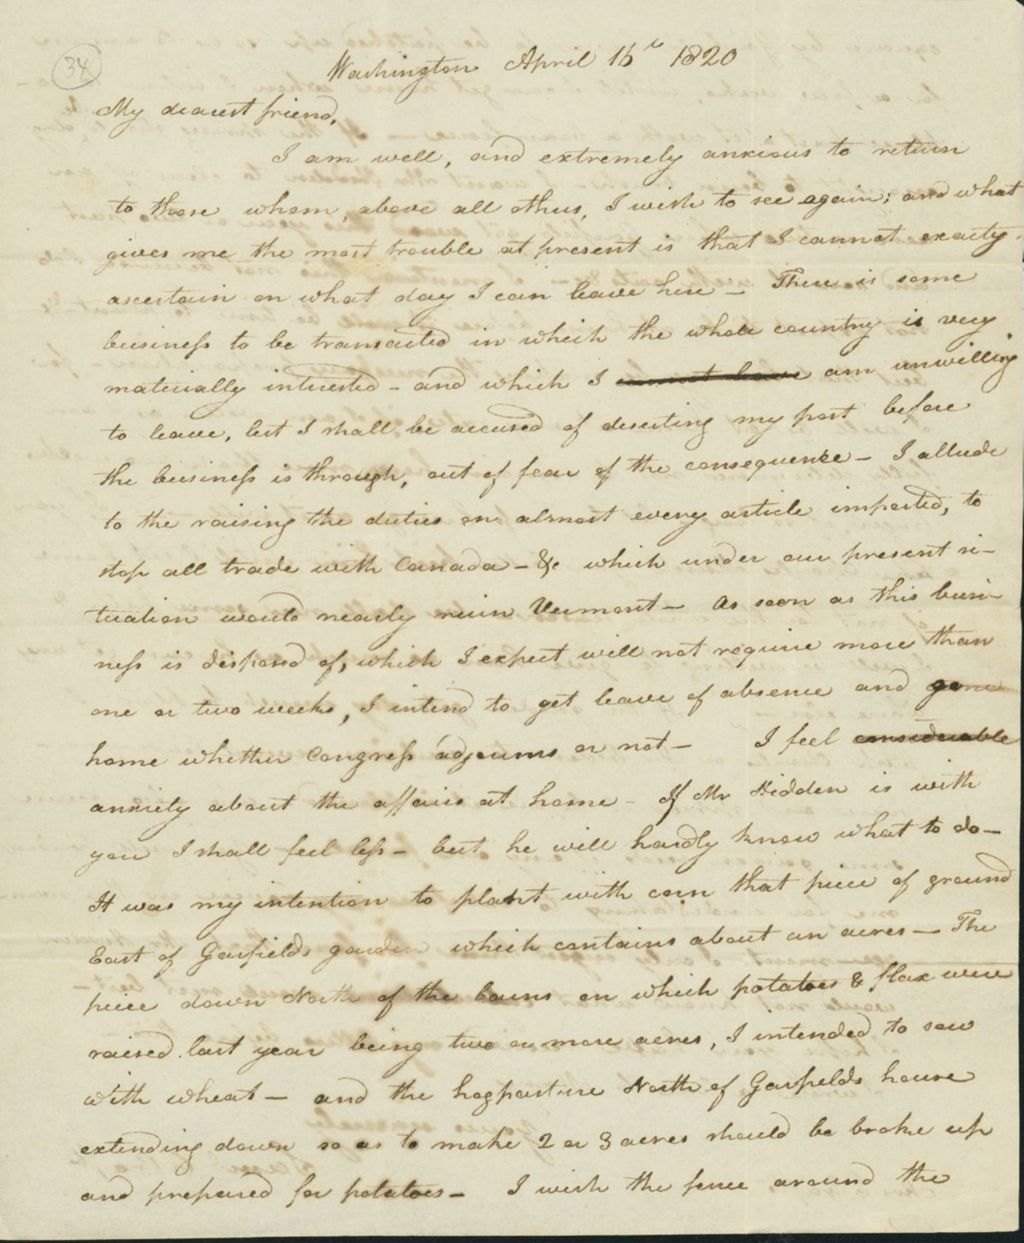 34
Washington April 16th 1820
My dearest friend,
I am well, and extremely anxious to return
to those whom, above all others, I wish to see again; and what
gives me the most trouble at present is that I cannot exactly
ascertain on what day I can leave here - There is some
business to be transacted in which the whole country is very
materially interested - and which I cannot leave am unwilling
to leave, lest I shall be accused of deserting my post before
the business is through, out of fear of the consequence - I allude
to the raising the duties on almost every article imported, to
stop all trade with Canada - & which under our present si-
tuation would nearly ruin Vermont - As soon as this busi-
ness is disposed of, which I expect will not require more than
one or two weeks, I intend to get leave of absence and
home whether Congress adjourns or not - I feel considerable
anxiety about the affairs at home - If Mr Hidden is with
you I shall feel less - but he will hardly know what to do -
It was my intention to plant with corn that piece of ground
East of Garfields garden which contains about an acres - The
piece down North of the barns on which potatoes & flax were
raised last year being two or more acres, I intended to sow
with wheat - and the hogpasture North of Garfields house
extending down so as to make 2 or 3 acres should be broke up
and prepared for potatoes - I wish the fence around the